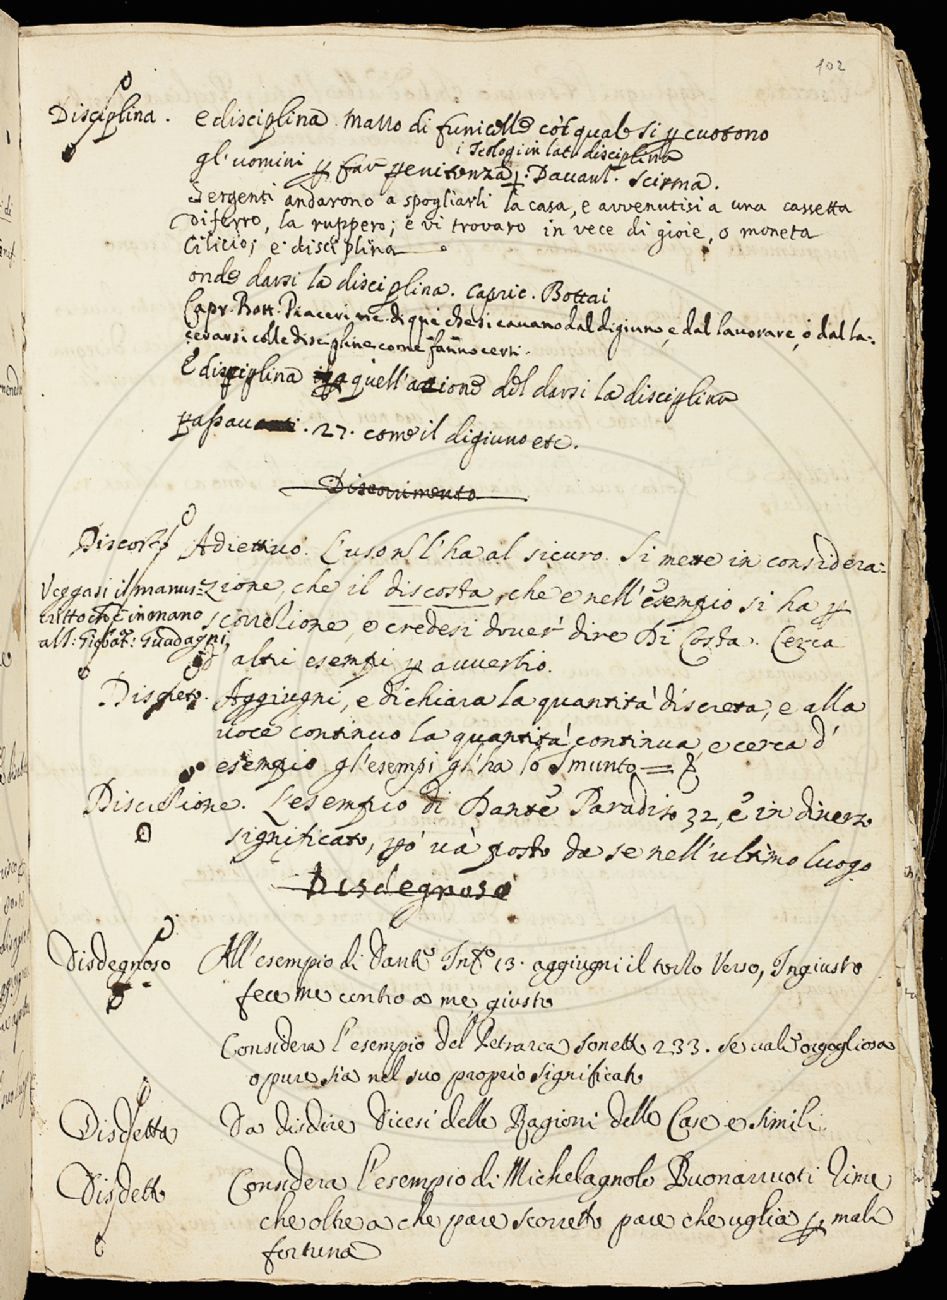 102
Disciplina. e disciplina. Mazzo di funicelle col quale si p cuotono
i Teologi in lat. disciplina
gl'uomini p far penitenza. Davanz. Scisma.
Sergenti andarono a spogliarli la casa, e avvenutisi a una cassetta
di ferro, la ruppero; e vi trovaro in vece di gioie, o moneta
Cilicio; e disciplina
onde darsi la disciplina. Capric. Bottai
Capr. Bott. Piaceri ne di que che si cavano dal digiuno, e dal lavorare, o dal la=
cerarsi colle discipline come fanno certi.
E disciplina p quell'azione del darsi la disciplina
Passavanti. 27. come il digiuno etc.
Discorrimento
Discosto Adiettivo. L'uson l'ha al sicuro. Si mette in considera=
zione, che il discosta, che e nell'esempio si ha p
Veggasi il manus=
critto ch'è in mano
all. Giobat: Guadagni,
scorrezione, e credesi dover dire Di Costa. Cerca
altri esempi p avverbio.
Discreto. Aggiugni, e dichiara la quantità discreta, e alla
voce continuo la quantità continua, e cerca d'
esempio gl'esempi gl'ha lo Smunto
Discrezione. L'esempio di Dante Paradiso 32, è in diverso
significato, pò và posto da se nell'ultimo luogo
Disdegnoso
Disdegnoso All'esempio di Dante Inf. 13. aggiugni il terzo Verso, Ingiusto
fece me contro a me giusto
Considera l'esempio del Petrarca Sonetto 233. se vale orgogliosa
oppure sia nel suo proprio significato
Disdetta Da disdire dicesi delle Ragioni delle Case e simili
Disdetto Considera l'esempio di Michelagnolo Buonarruoti Rime
che oltre a che pare scorretto pare che voglia p mala
fortuna